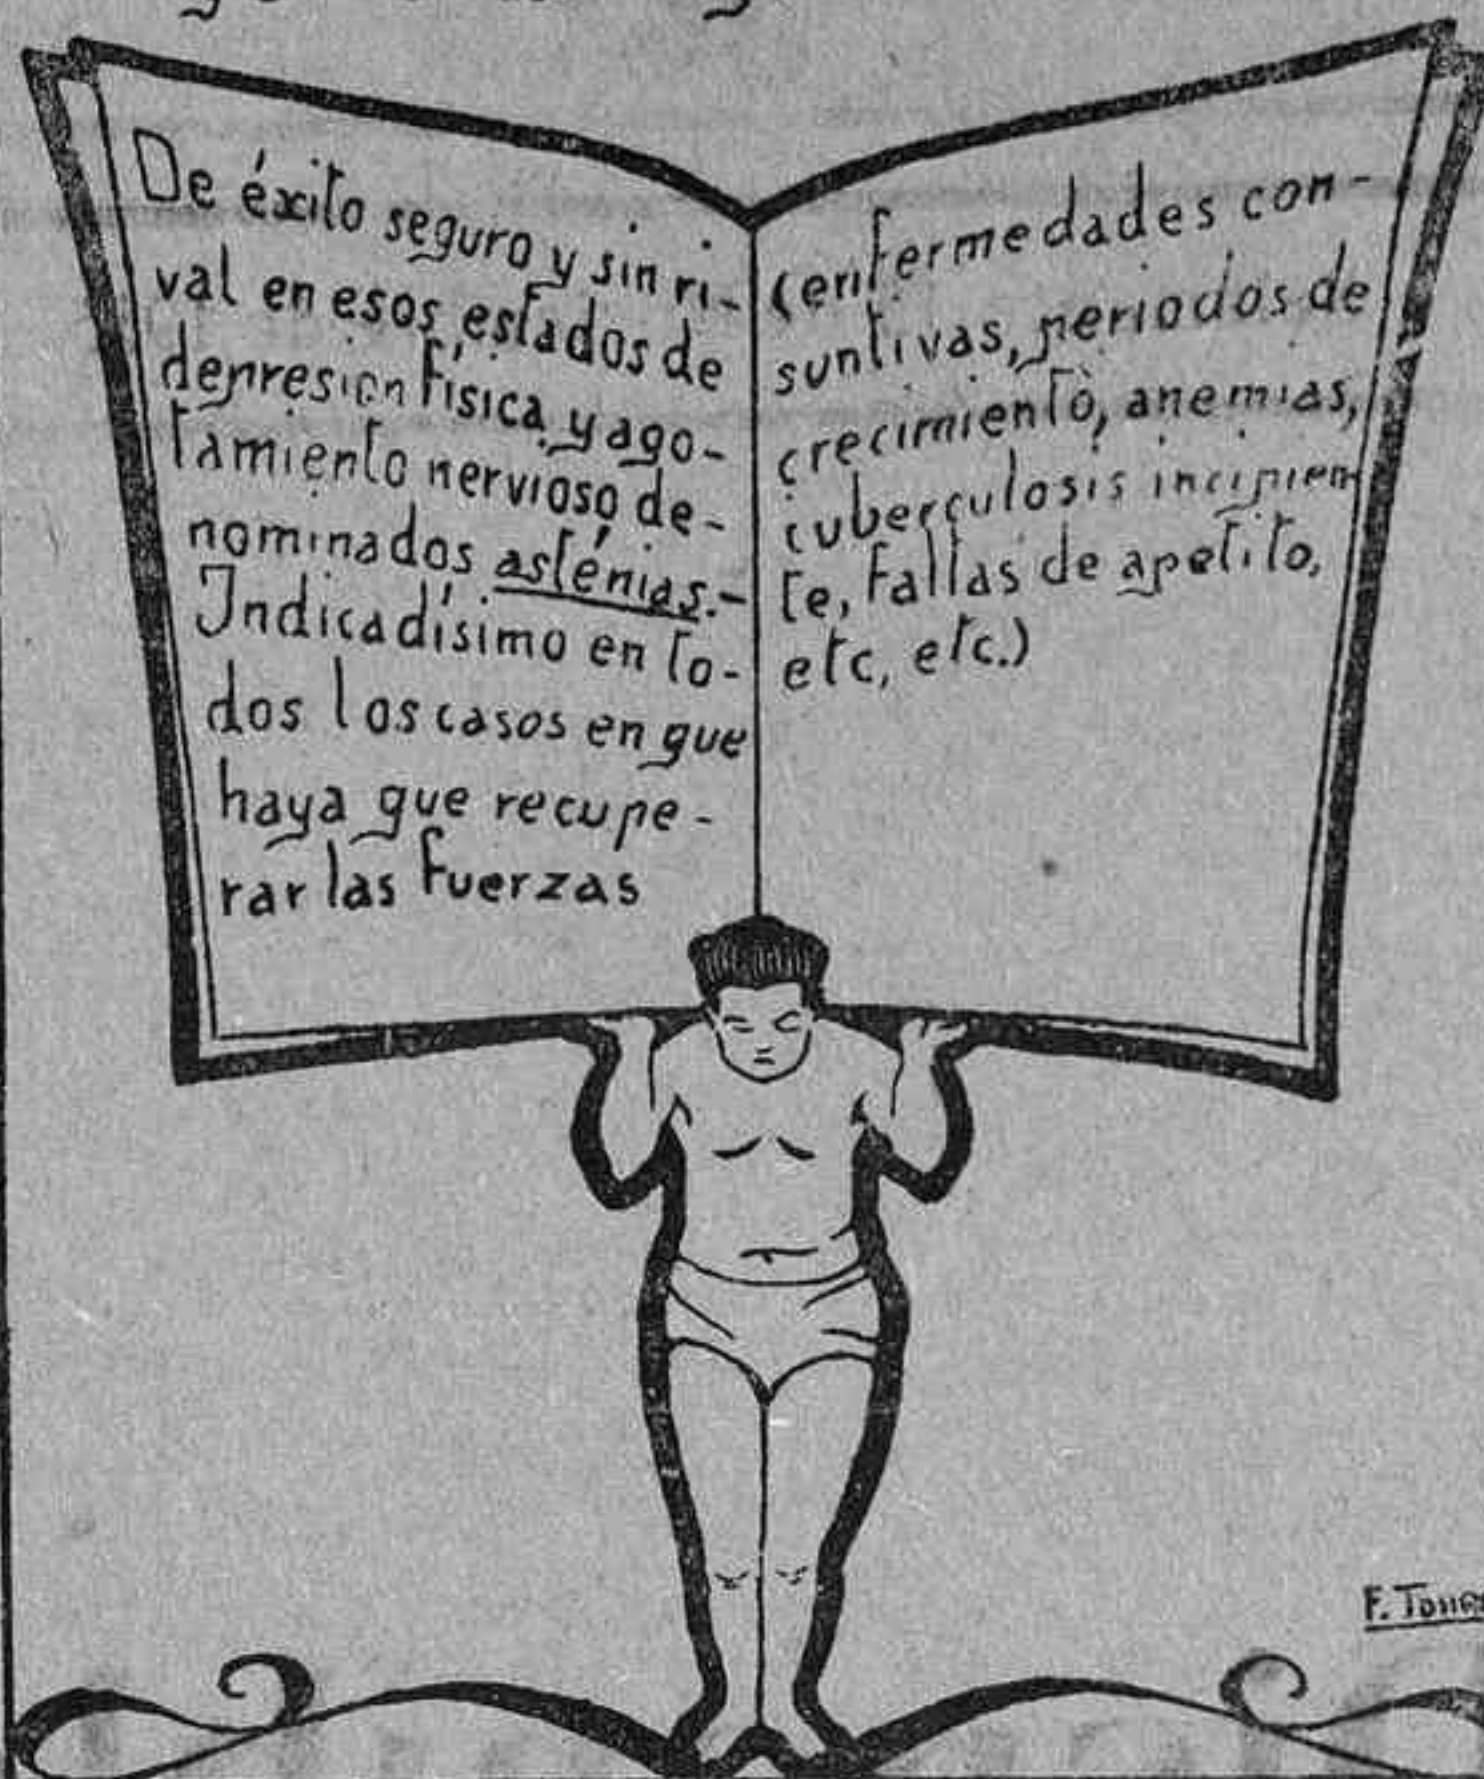 De éxito seguro y sin ri-
val en esos estados de
depresión física y ago-
tamiento nervioso de-
nominados asténias.-
Indicadísimo en to-
dos los casos en que
haya que recupe-
rar las fuerzas
(enfermedades con-
suntivas, periodos de
crecimiento, anemias,
tuberculosis incipien
te, faltas de apetito,
etc, etc.)
F.